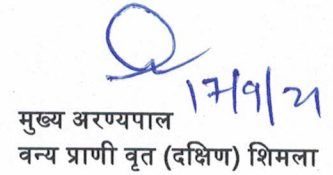 17/9/21
मुख्य अरण्यपाल
वन्य प्राणी वृत (दक्षिण) शिमला